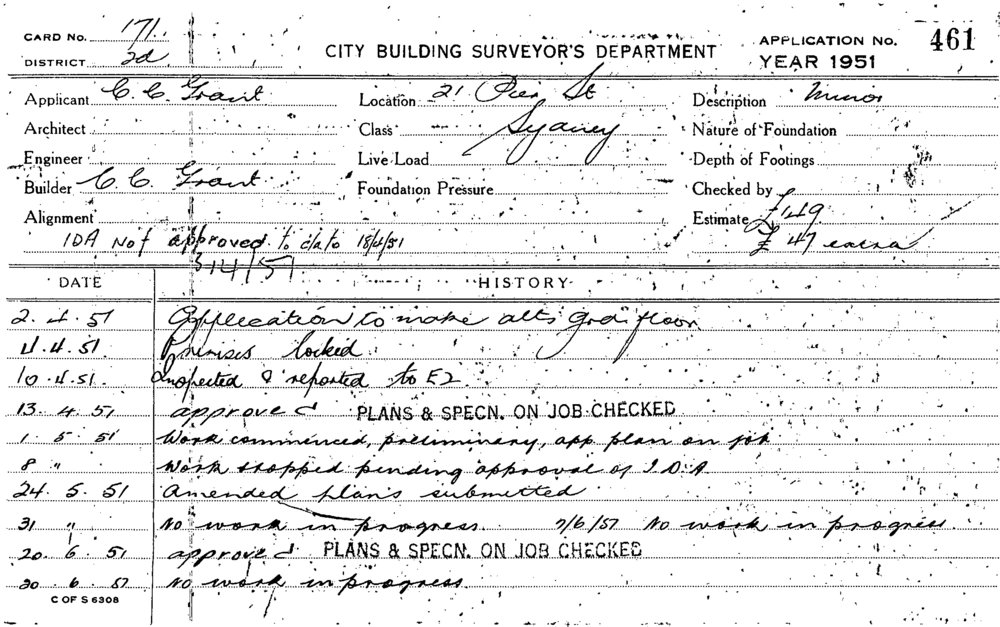 CARD No. 171.
DISTRICT 2d
CITY BUILDING SURVEYOR'S DEPARTMENT
APPLICATION No. 461
YEAR 1951
Applicant C. C. Grant
Location 21 Pier St
Description Minor
Architect
Class Sydney
Nature of Foundation
Engineer
Live Load
Depth of Footings
Builder C. C. Grant
Foundation Pressure
Checked by
Alignment
Estimate £149
£ 47 extra
IDA Not approved to date 18/4/51
DATE HISTORY
2. 4. 51 Application to make alts grd. floor
4.4.51 Premises locked
10.4.51. Inspected & reported to E2
13. 4. 51 approved PLANS & SPECN. ON JOB CHECKED
1. 5. 51 Work commenced, preliminary, app. plan on job
8 " Work stopped pending approval of I.D.A
24. 5. 51 Amended plans submitted
31 " No work in progress. 7/6/51 No work in progress.
20. 6. 51 approved PLANS & SPECN. ON JOB CHECKED
20. 6. 51 No work in progress
C OF S 6308